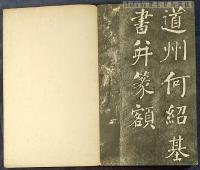 道州何紹基
書并篆額